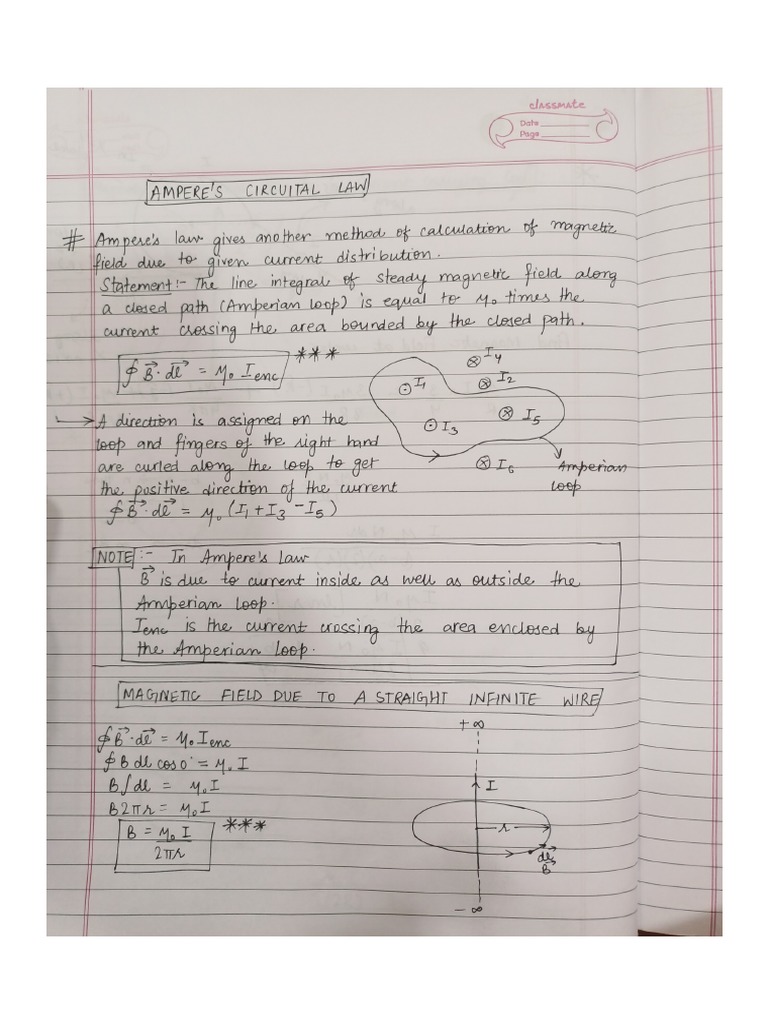 classmate
Date
Page
AMPERE'S CIRCUITAL LAW
# Ampere's law gives another method of calculation of magnetic
field due to given current distribution.
Statement :- The line integral of steady magnetic field along
a closed path (Amperian loop) is equal to μ₀ times the
current crossing the area bounded by the closed path.
∮B⃗·dl⃗ = μ₀ Ienc ***
⊗ I4
⊙ I1
⊗ I2
⊗ I5
⊙ I3
⊗ I6
Amperian
loop
→ A direction is assigned on the
loop and fingers of the right hand
are curled along the loop to get
the positive direction of the current
∮B⃗·dl⃗ = μ₀ (I1 + I3 − I5)
NOTE :- In Ampere's Law
B⃗ is due to current inside as well as outside the
Amperian Loop.
Ienc is the current crossing the area enclosed by
the Amperian Loop.
MAGNETIC FIELD DUE TO A STRAIGHT INFINITE WIRE
∮B⃗·dl⃗ = μ₀ Ienc
∮B dl cos0° = μ₀ I
B∫dl = μ₀ I
B2πr = μ₀ I
B = μ₀ I ***
2πr
+∞
I
r
dl⃗
B⃗
−∞